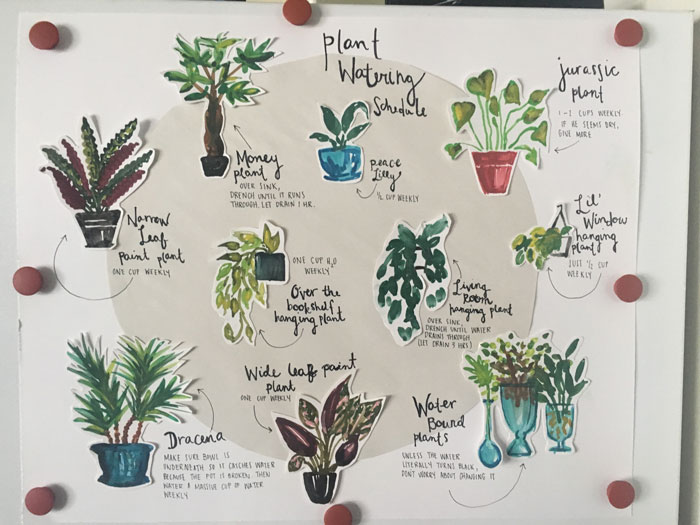 plant
Watering
Schedule
jurassic
plant
1-2 CUPS WEEKLY
IF HE SEEMS DRY,
GIVE MORE
Money
plant
OVER SINK,
DRENCH UNTIL IT RUNS
THROUGH. LET DRAIN 1 HR.
peace
Lilly
½ CUP WEEKLY
Narrow
Leaf
paint plant
ONE CUP WEEKLY
Lil'
Window
hanging
plant
JUST ½ CUP
WEEKLY
ONE CUP H2O
WEEKLY
Over the
bookshelf
hanging plant
Living
Room
hanging plant
OVER SINK,
DRENCH UNTIL WATER
DRAINS THROUGH
(LET DRAIN 3 HRS)
Wide leaf paint
plant
ONE CUP WEEKLY
Dracena
MAKE SURE BOWL IS
UNDERNEATH SO IT CATCHES WATER
BECAUSE THE POT IS BROKEN. THEN
WATER A MASSIVE CUP OF WATER
WEEKLY
Water
Bound
plants
UNLESS THE WATER
LITERALLY TURNS BLACK,
DON'T WORRY ABOUT CHANGING IT